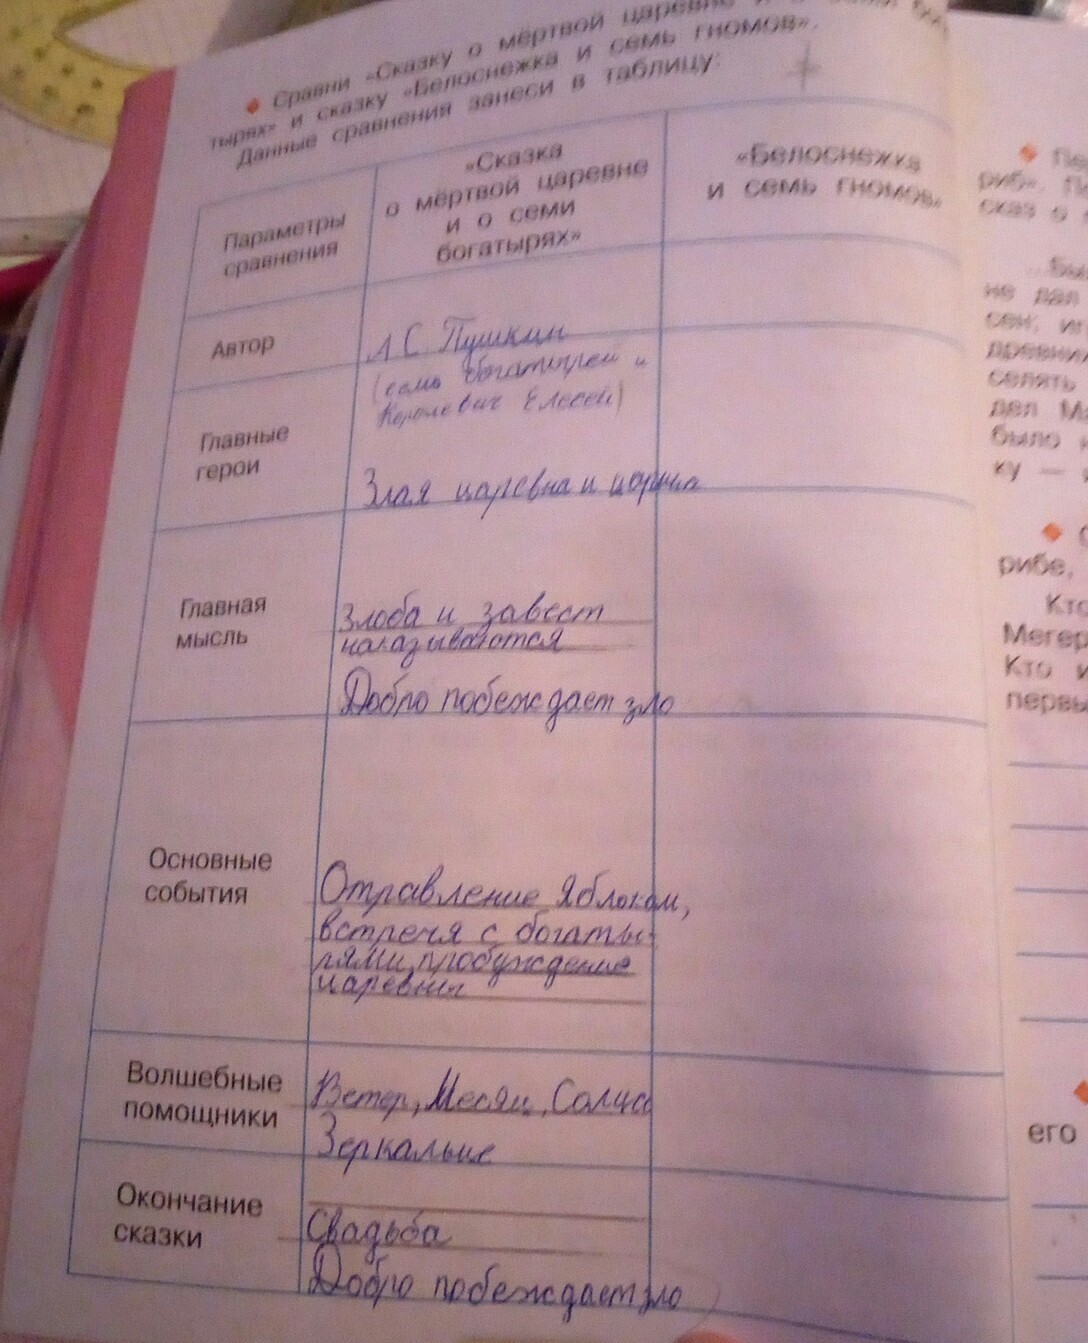 ◆ Сравни «Сказку о мёртвой царевне
тырях» и сказку «Белоснежка и семь гномов».
Данные сравнения занеси в таблицу:
Параметры
сравнения
«Сказка
о мёртвой царевне
и о семи
богатырях»
«Белоснежка
и семь гномов»
Автор
А С Пушкин
Главные
герои
(семь богатырей и
Королевич Елесей)
Злая царевна и
Главная
мысль
Злоба и завест
наказываются
Добро побеждает зло
Основные
события
Отравление Яблоком,
встреча с богаты-
рями, пробуждение
царевны
Волшебные
помощники
Ветер, Месяц,
Зеркальце
Окончание
сказки
Свадьба
Добро побеждает зло
риб».
сказ о
не дал
сен,
древни
селять
дел
было
ку —
рибе,
Кто
Мегер
Кто и
первы
его